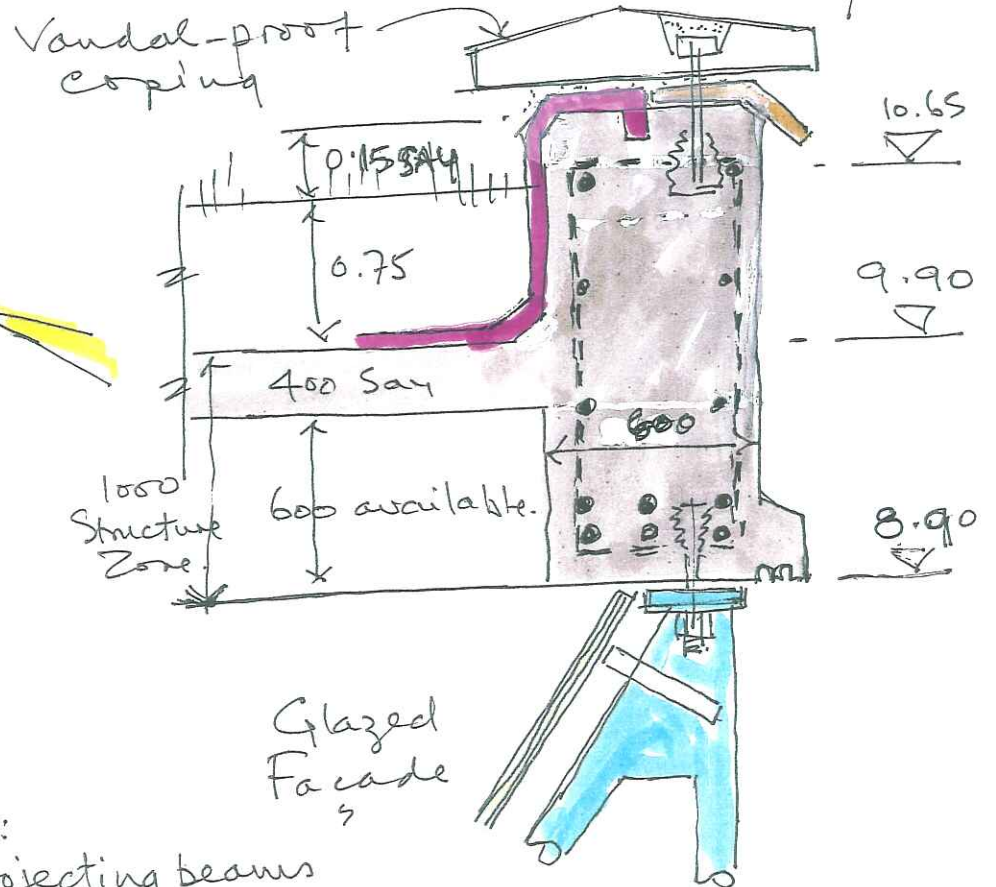 Vandal-proof
coping
10.65
0.15 SAY
0.75
9.90
400 Say
600
1000
Structure
Zone.
600 available.
8.90
Glazed
Facade
:
ojecting beams